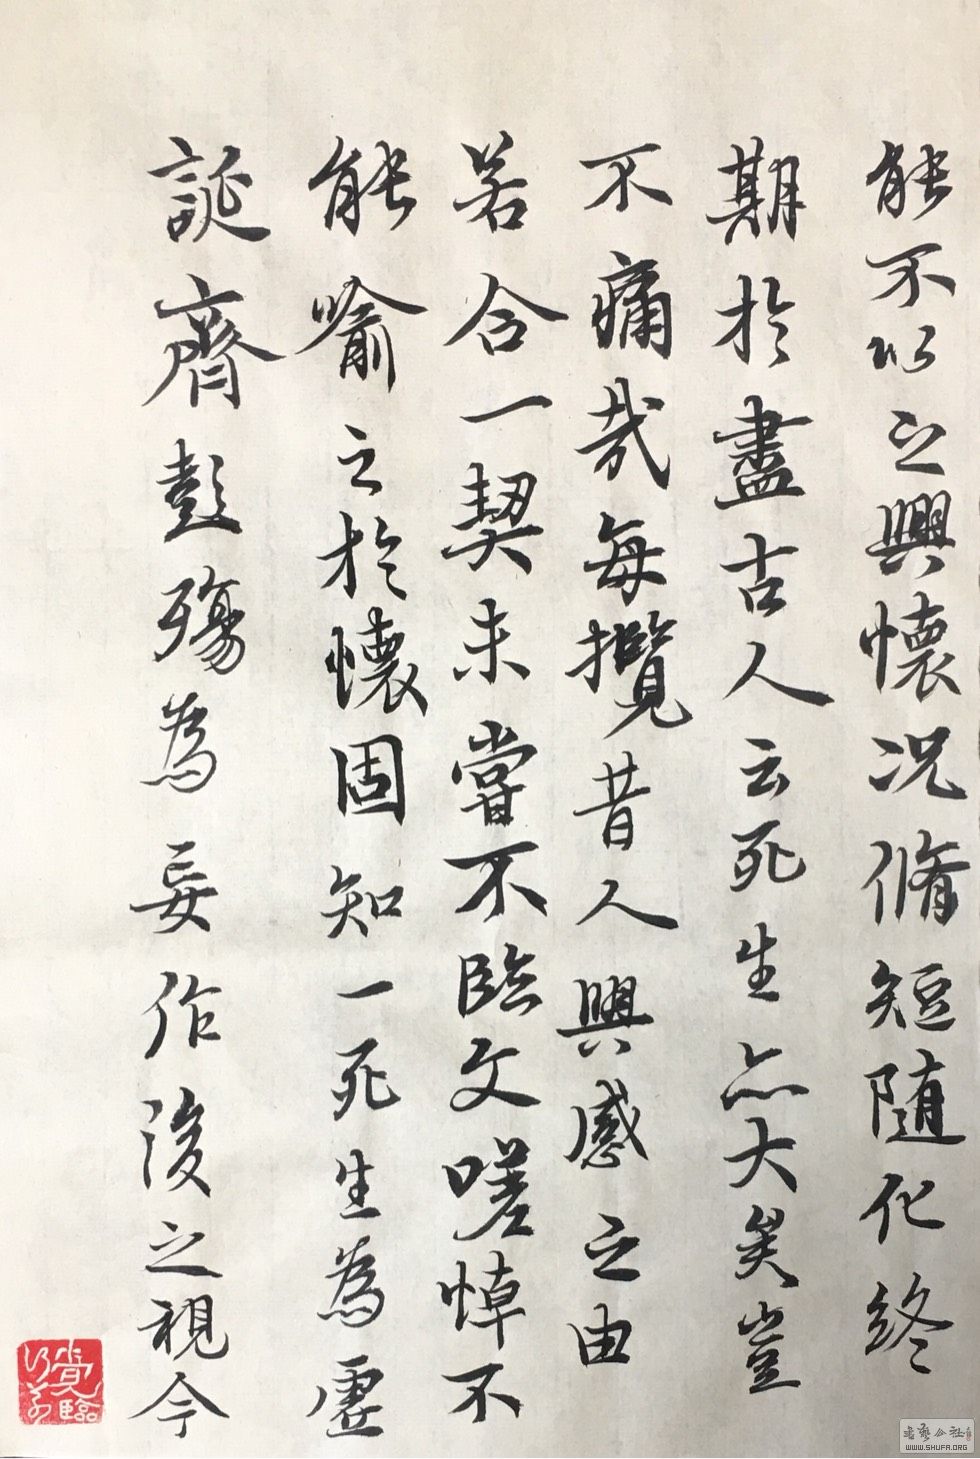 能不以之興懷況脩短随化終
期於盡古人云死生亦大矣豈
不痛哉每攬昔人興感之由
若合一契未嘗不臨文嗟悼不
能喻之於懷固知一死生為虛
誕齊彭殤為妄作後之視今
WWW.SHUFA.ORG